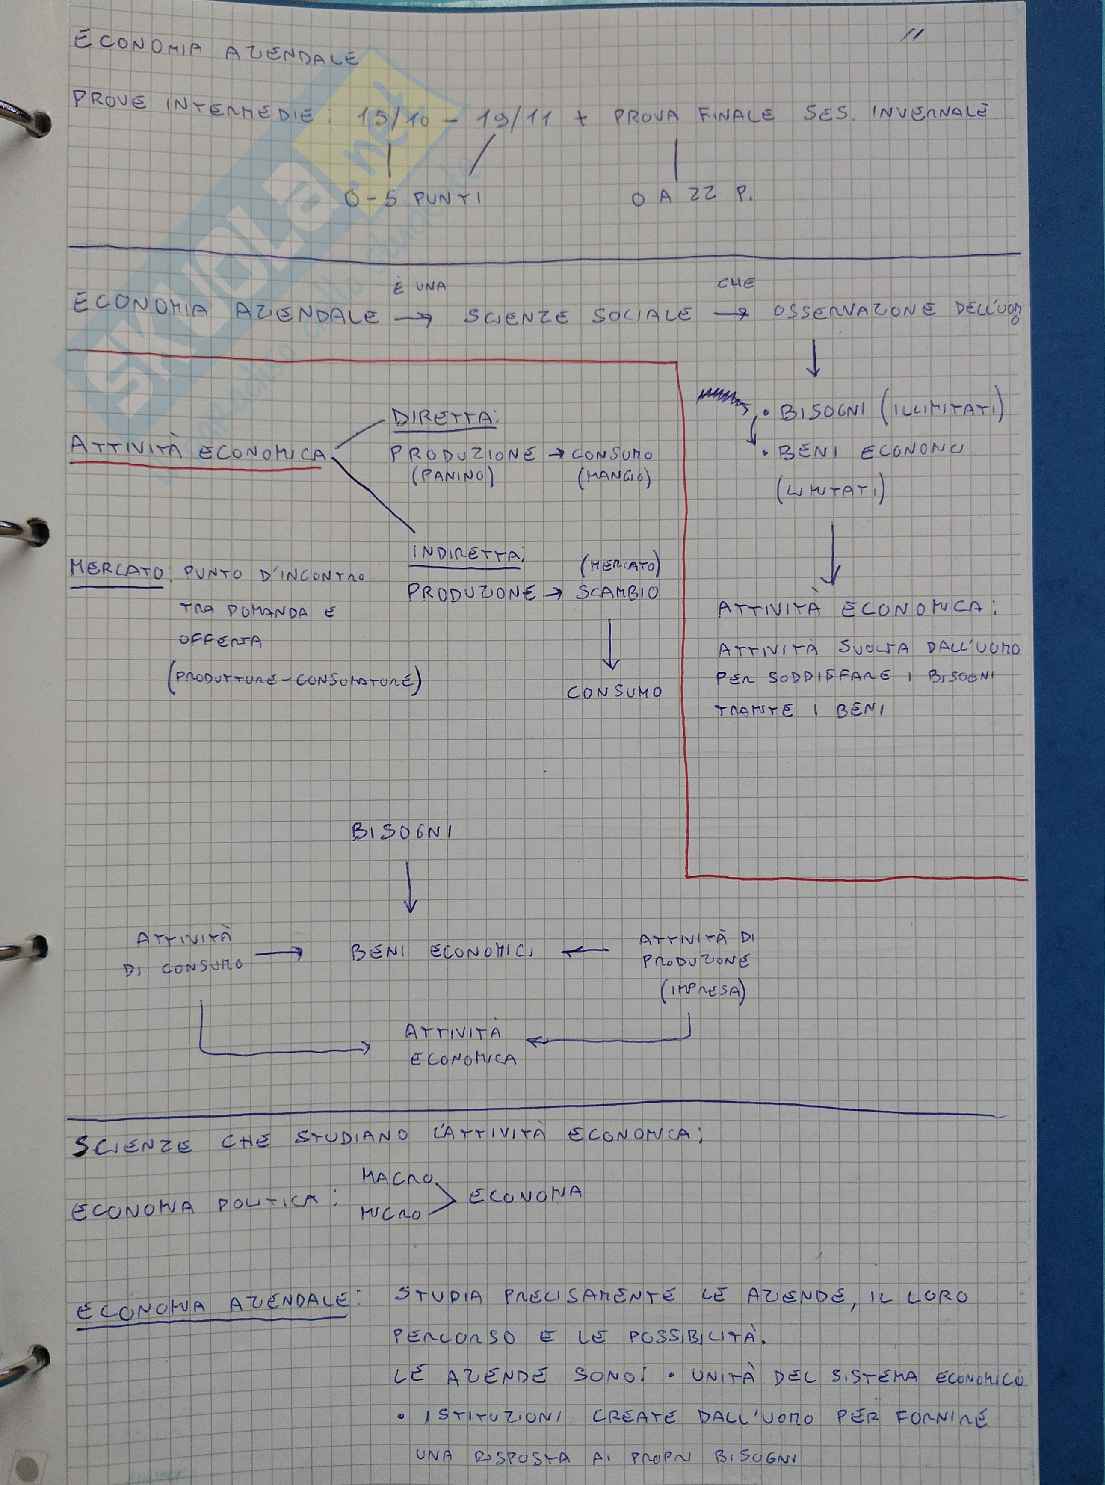 ECONOMIA AZIENDALE
PROVE INTERMEDIE: 15/10 - 19/11 + PROVA FINALE SES. INVERNALE
0-5 PUNTI
0 A 22 P.
È UNA
CHE
ECONOMIA AZIENDALE → SCIENZE SOCIALE → OSSERVAZIONE DELL'UOMO
• BISOGNI (ILLIMITATI)
• BENI ECONOMICI
(LIMITATI)
ATTIVITÀ ECONOMICA:
ATTIVITÀ SVOLTA DALL'UOMO
PER SODDISFARE I BISOGNI
TRAMITE I BENI
ATTIVITÀ ECONOMICA
DIRETTA:
PRODUZIONE → CONSUMO
(PANINO) (MANGIO)
INDIRETTA:
(MERCATO)
PRODUZIONE → SCAMBIO
CONSUMO
MERCATO: PUNTO D'INCONTRO
TRA DOMANDA E
OFFERTA
(PRODUTTORE-CONSUMATORE)
BISOGNI
ATTIVITÀ
DI CONSUMO
BENI ECONOMICI
ATTIVITÀ DI
PRODUZIONE
(IMPRESA)
ATTIVITÀ
ECONOMICA
SCIENZE CHE STUDIANO L'ATTIVITÀ ECONOMICA:
ECONOMIA POLITICA:
MACRO
MICRO
ECONOMIA
ECONOMIA AZIENDALE: STUDIA PRECISAMENTE LE AZIENDE, IL LORO
PERCORSO E LE POSSIBILITÀ.
LE AZIENDE SONO: • UNITÀ DEL SISTEMA ECONOMICO
• ISTITUZIONI CREATE DALL'UOMO PER FORNIRE
UNA RISPOSTA AI PROPRI BISOGNI
SKUOLA.net